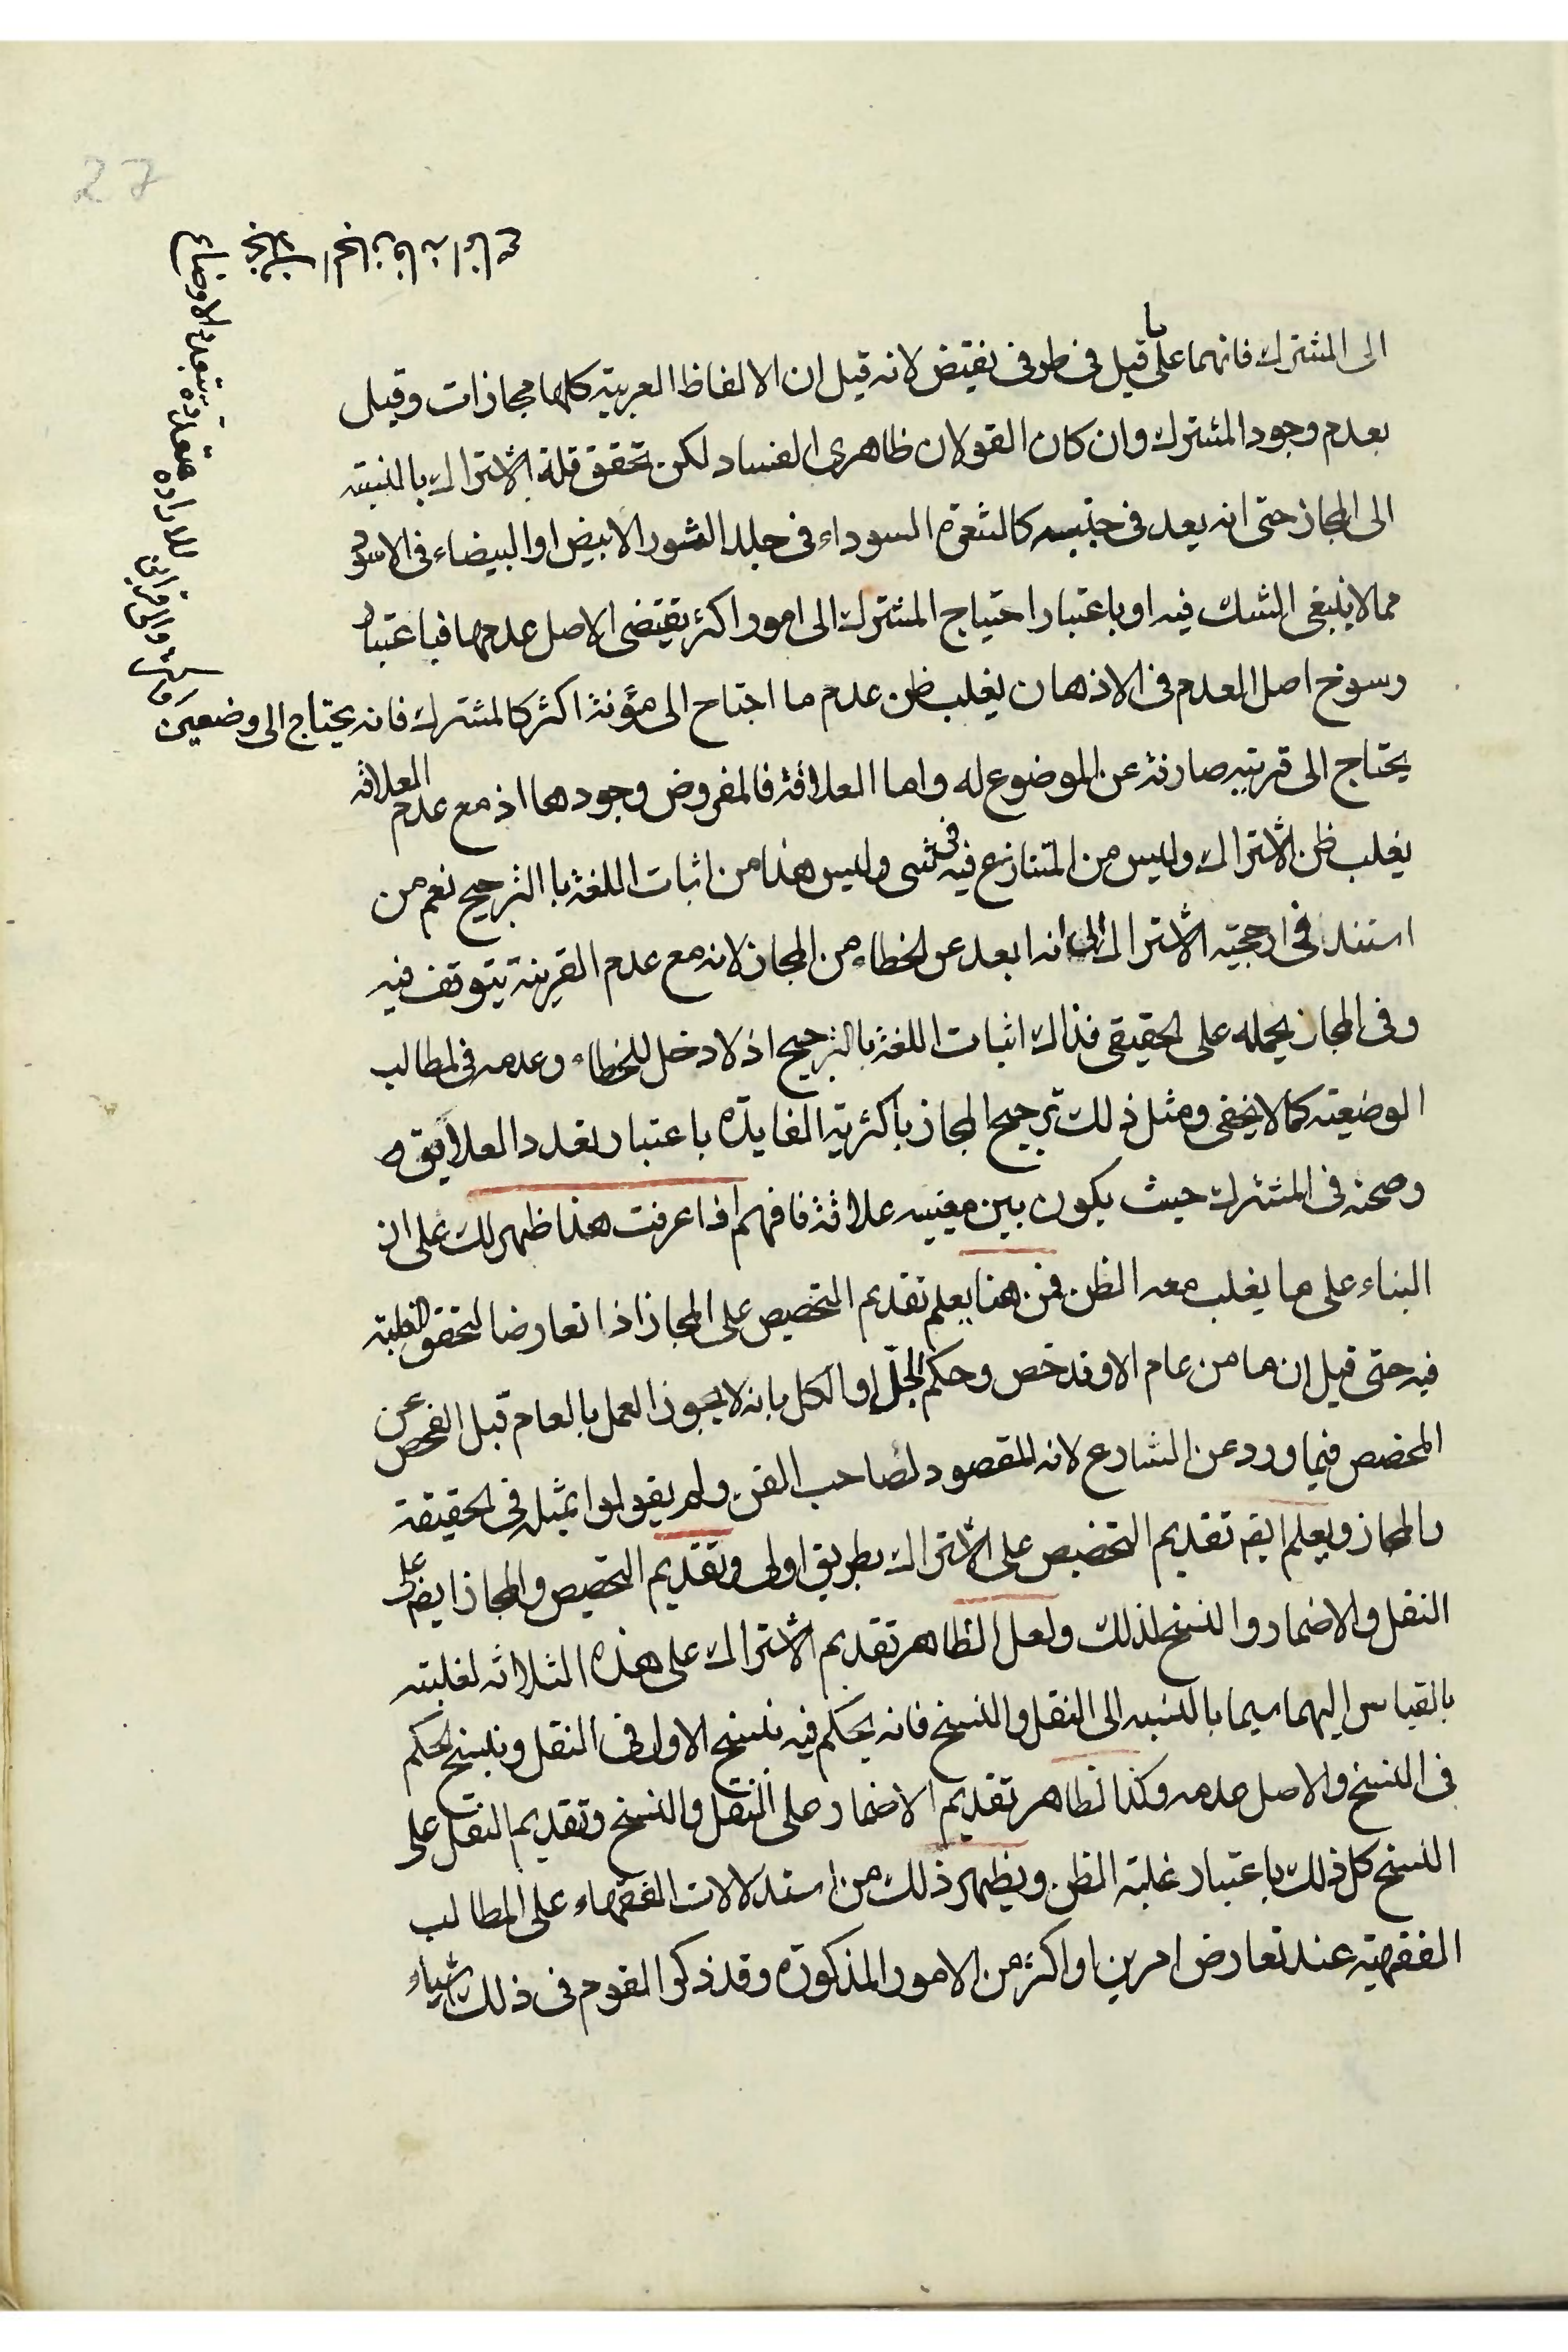 27
الى المشترك فانهما على ما قيل فى طرفى نقيض لانه قيل ان الالفاظ العربية كلها مجازات وقيل
بعدم وجود المشترك وان كان القولان ظاهرى الفساد لكن تحقق قلة الاشتراك بالنسبة
الى المجاز حتى انه يعد فى جنبيه كالشعرة السوداء فى جلد الثور الابيض او البيضاء فى الاسود
مما لا ينبغى الشك فيه او باعتبار احتياج المشترك الى امور اكثر يقتضى الاصل عدمها فباعتبار
رسوخ اصل العدم فى الاذهان يغلب ظن عدم ما احتاج الى مؤنة اكثر كالمشترك فانه يحتاج الى وضعين
وقرينتين او قراين للارادة متعددة بتعدد الاوضاع
بخلاف المجاز فانه
يحتاج الى قرينة صارفة عن الموضوع له واما العلاقة فالمفروض وجودها اذ مع عدم العلاقة
يغلب ظن الاشتراك وليس من المتنازع فيه فى شى وليس هذا من اثبات اللغة با الترجيح نعم من
استند فى ارجحية الاشتراك الى انه ابعد عن الخطاء من المجاز لانه مع عدم القرينة يتوقف فيه
وفى المجاز يحمله على الحقيقى فذاك اثبات اللغة بالترجيح اذ لا دخل للخطاء وعدمه فى المطالب
الوضعية كما لا يخفى ومثل ذلك ترجيح المجاز باكثرية الفايدة باعتبار تعدد العلايق و
وصحته فى المشترك حيث يكون بين معنييه علاقة فافهم اذا عرفت هذا ظهر لك على ان
البناء على ما يغلب معه الظن فمن هنا يعلم تقديم التخصيص على المجاز اذا تعارضا لتحقق الغلبة
فيه حتى قيل ان ما من عام الا وقد خص وحكم الجل او الكل بانه لا يجوز العمل بالعام قبل الفحص عن
المخصص فيما ورد عن الشارع لانه المقصود لصاحب الفن ولم يقولوا بمثله فى الحقيقة
والمجاز ويعلم ايضا تقديم التخصيص على الاشتراك بطريق اولى وتقديم التخصيص والمجاز ايضا على
النقل والاضمار والنسخ لذلك ولعل الظاهر تقديم الاشتراك على هذه الثلاثه لغلبته
بالقياس اليهما سيما بالنسبه الى النقل والنسخ فانه يحكم فيه بنسخ الاول فى النقل وبنسخ الحكم
فى النسخ والاصل عدمه وكذا الظاهر تقديم الاضمار على النقل والنسخ وتقديم النقل على
النسخ كل ذلك باعتبار غلبة الظن ويظهر ذلك من استدلالات الفقهاء على المطالب
الفقهية عند تعارض امرين او اكثر من الامور المذكورة وقد ذكر القوم فى ذلك اشياء